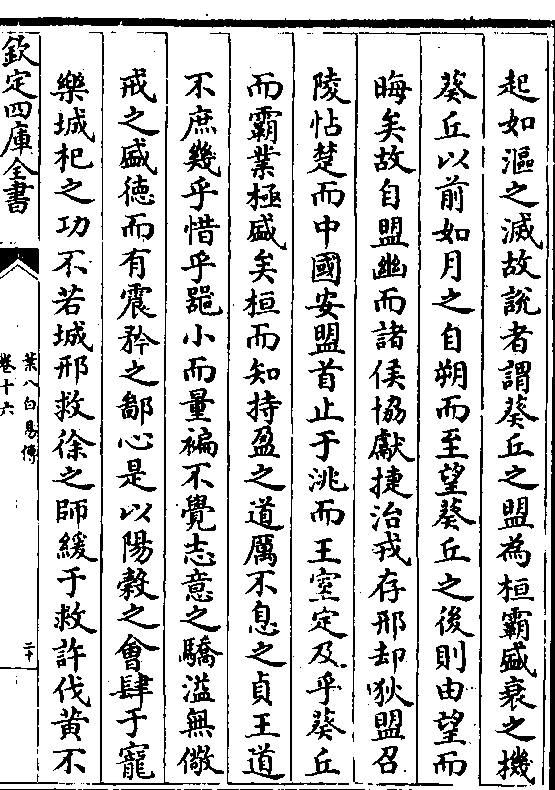 起如漚之滅故說者謂葵丘之盟為桓霸盛衰之機
葵丘以前如月之自朔而至望葵丘之後則由望而
晦矣故自盟幽而諸侯協獻捷治戎存邢却狄盟召
陵怗楚而中國安盟首止于洮而王室定及乎葵丘
而霸業極盛矣桓而知持盈之道厲不息之貞王道
不庶幾乎惜乎噐小而量褊不覺志意之驕溢無儆
戒之盛德而有震矜之鄙心是以陽穀之會肆于寵
樂城杞之功不若城邢救徐之師緩于救許伐黃不
欽定四庫全書
葉八白易傳
卷十六
二十